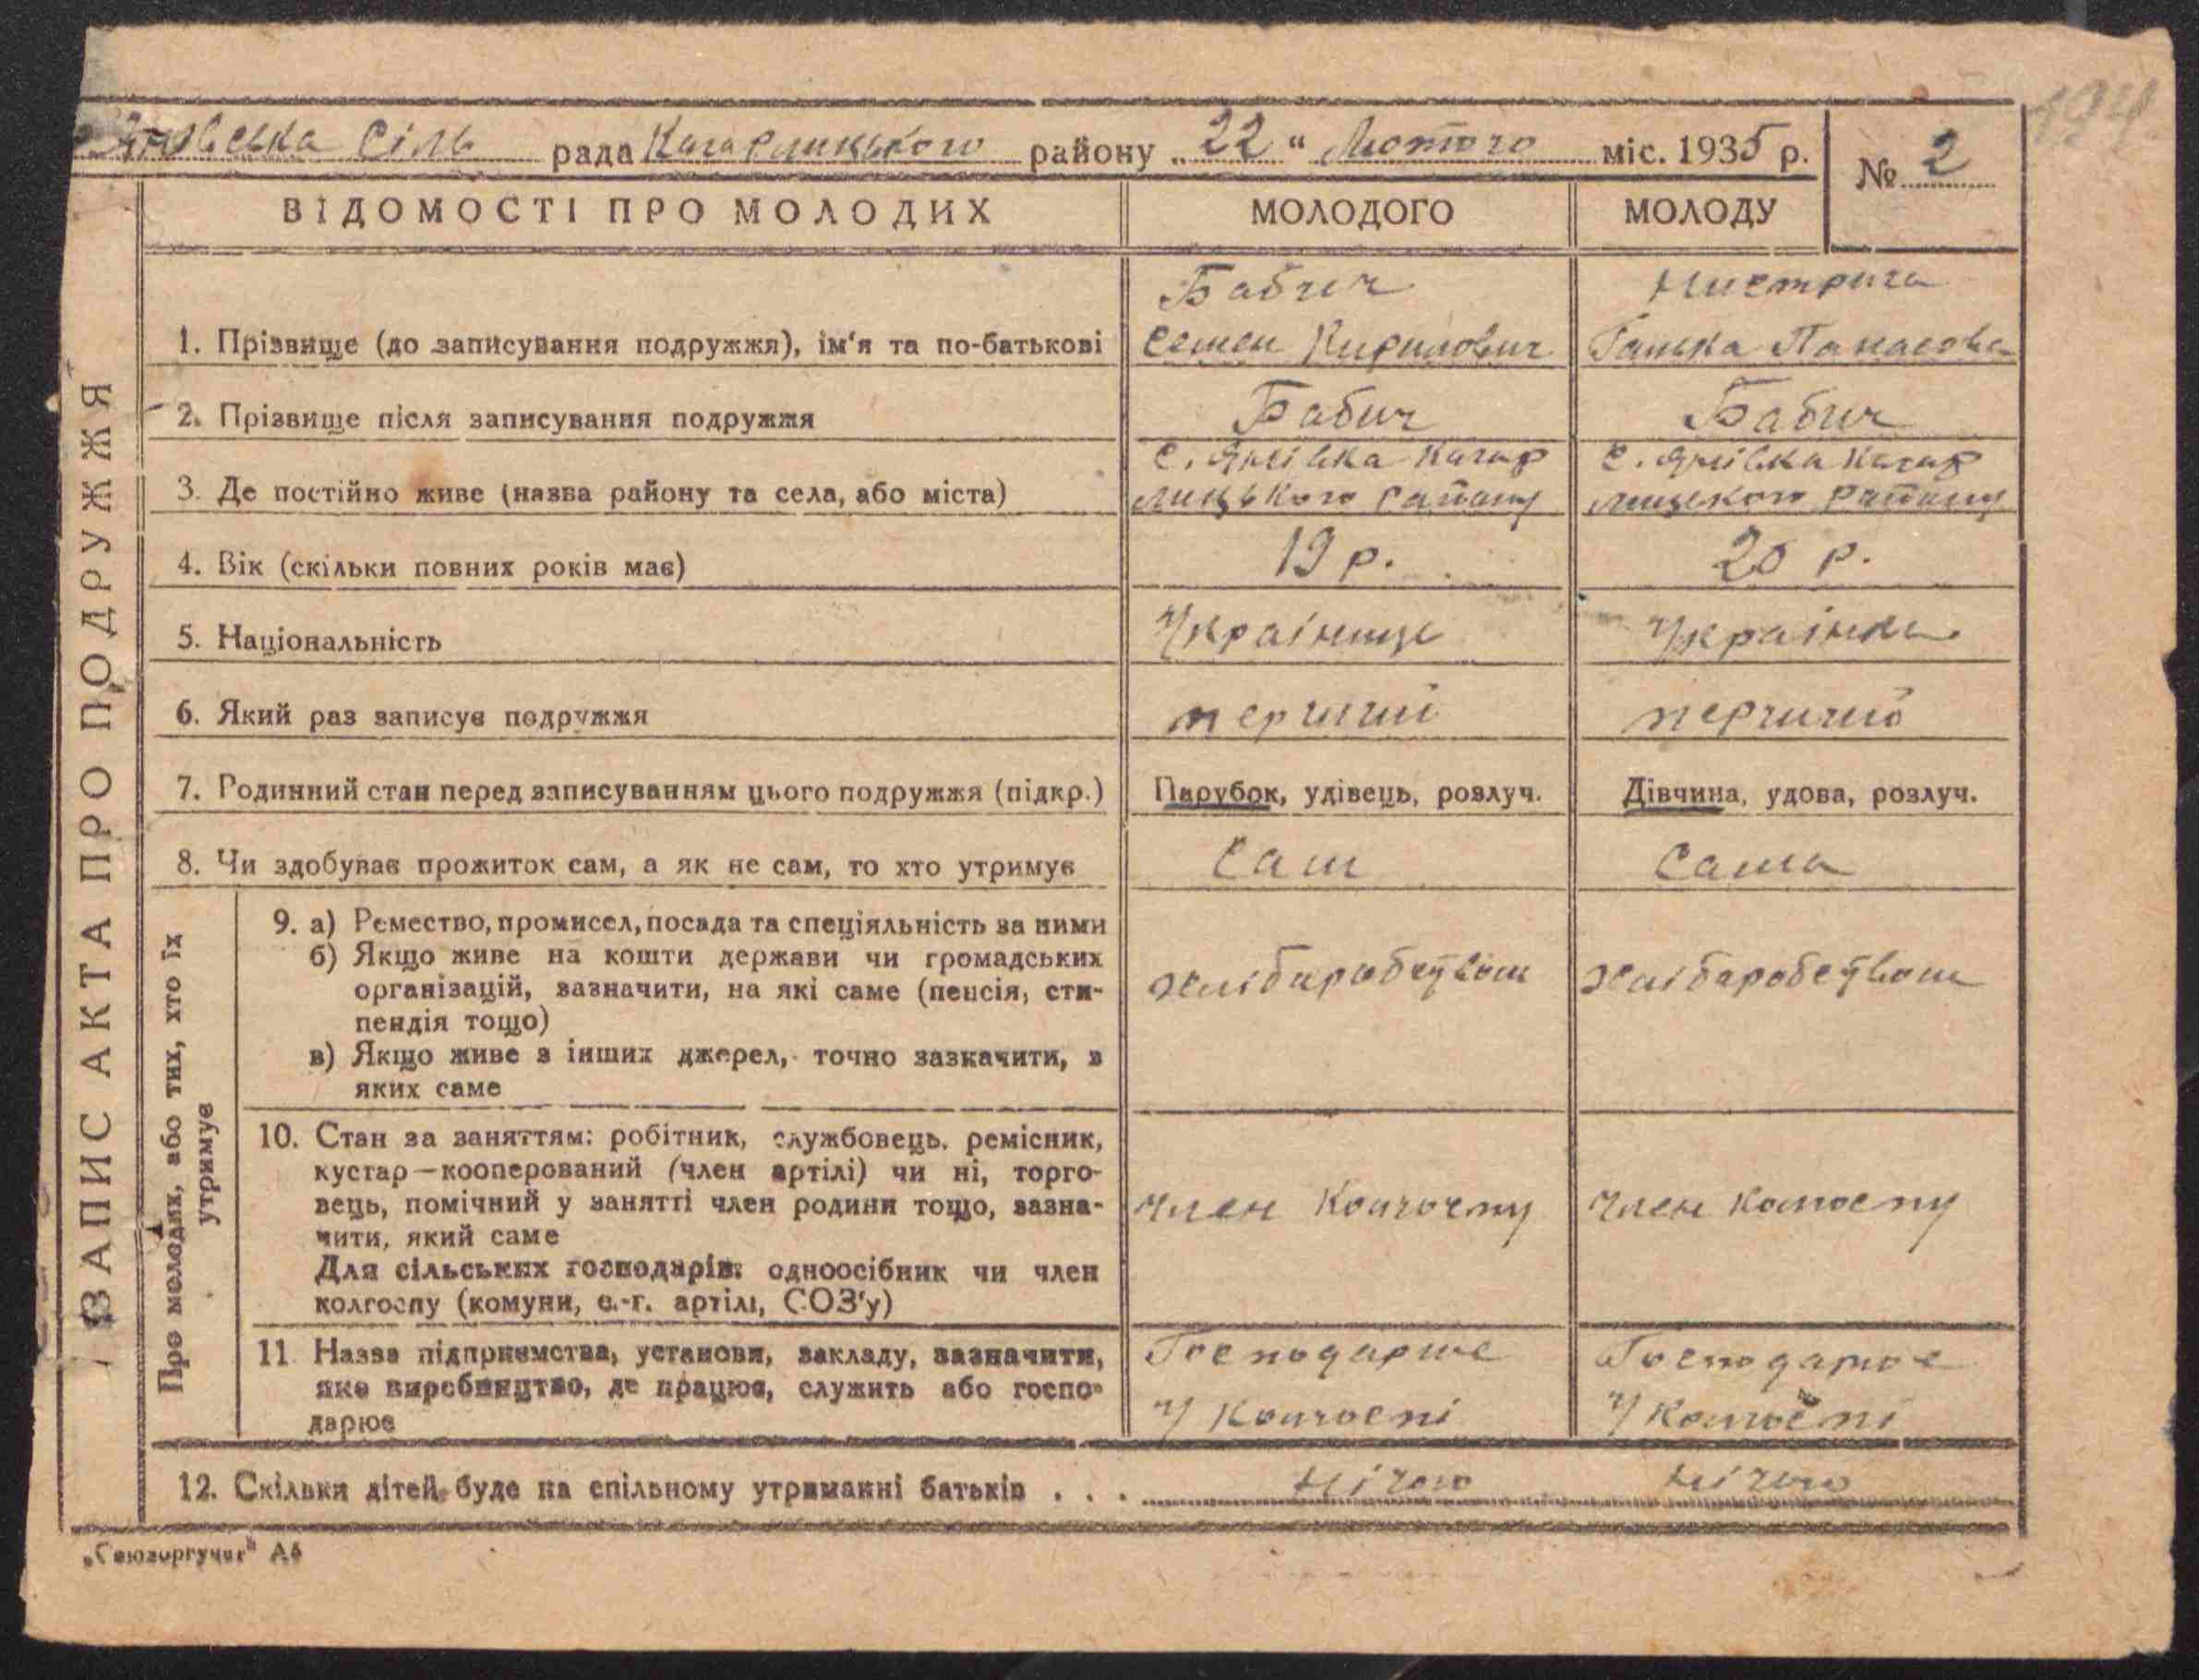 Янівська Сіль рада Кагарлицького району „22“ Лютого міс. 1935 р.
№ 2
194
ЗАПИС АКТА ПРО ПОДРУЖЖЯ
ВІДОМОСТІ ПРО МОЛОДИХ МОЛОДОГО МОЛОДУ
Бабич
1. Прізвище (до записування подружжя), ім'я та по-батькові Семен Кирилович Ганька Панасовна
2. Прізвище після записування подружжя Бабич Бабич
с. Янівка Кагар с. Янівка Кагар
3. Де постійно живе (назва району та села, або міста) лицького району лицького району
4. Вік (скільки повних років має) 19 р. 20 р.
5. Національність Українець Українка
6. Який раз записує подружжя перший перший
7. Родинний стан перед записуванням цього подружжя (підкр.) Парубок, удівець, розлуч. Дівчина, удова, розлуч.
8. Чи здобуває прожиток сам, а як не сам, то хто утримує Сам Сама
Про молодих, або тих, хто їх
утримує
9. а) Ремество, промисел, посада та спеціяльність за ними
б) Якщо живе на кошти держави чи громадських
організацій, зазначити, на які саме (пенсія, сти-
пендія тощо)
в) Якщо живе з інших джерел, точно зазначити, з
яких саме
хлібаробством хлібаробством
10. Стан за заняттям: робітник, службовець, ремісник,
кустар—кооперований (член артілі) чи ні, торго-
вець, помічний у занятті член родини тощо, зазна-
чити, який саме
Для сільських господарів: одноосібник чи член
колгоспу (комуни, с.-г. артілі, СОЗ'у)
член Колгоспу член Колгоспу
11. Назва підприємства, установи, закладу, зазначити,
яке виробництво, де працює, служить або госпо-
дарює
Господарює Господарює
у Колгоспі у Колгоспі
12. Скільки дітей буде на спільному утриманні батьків . . . Нічого Нічого
„Союзоргучет" А6